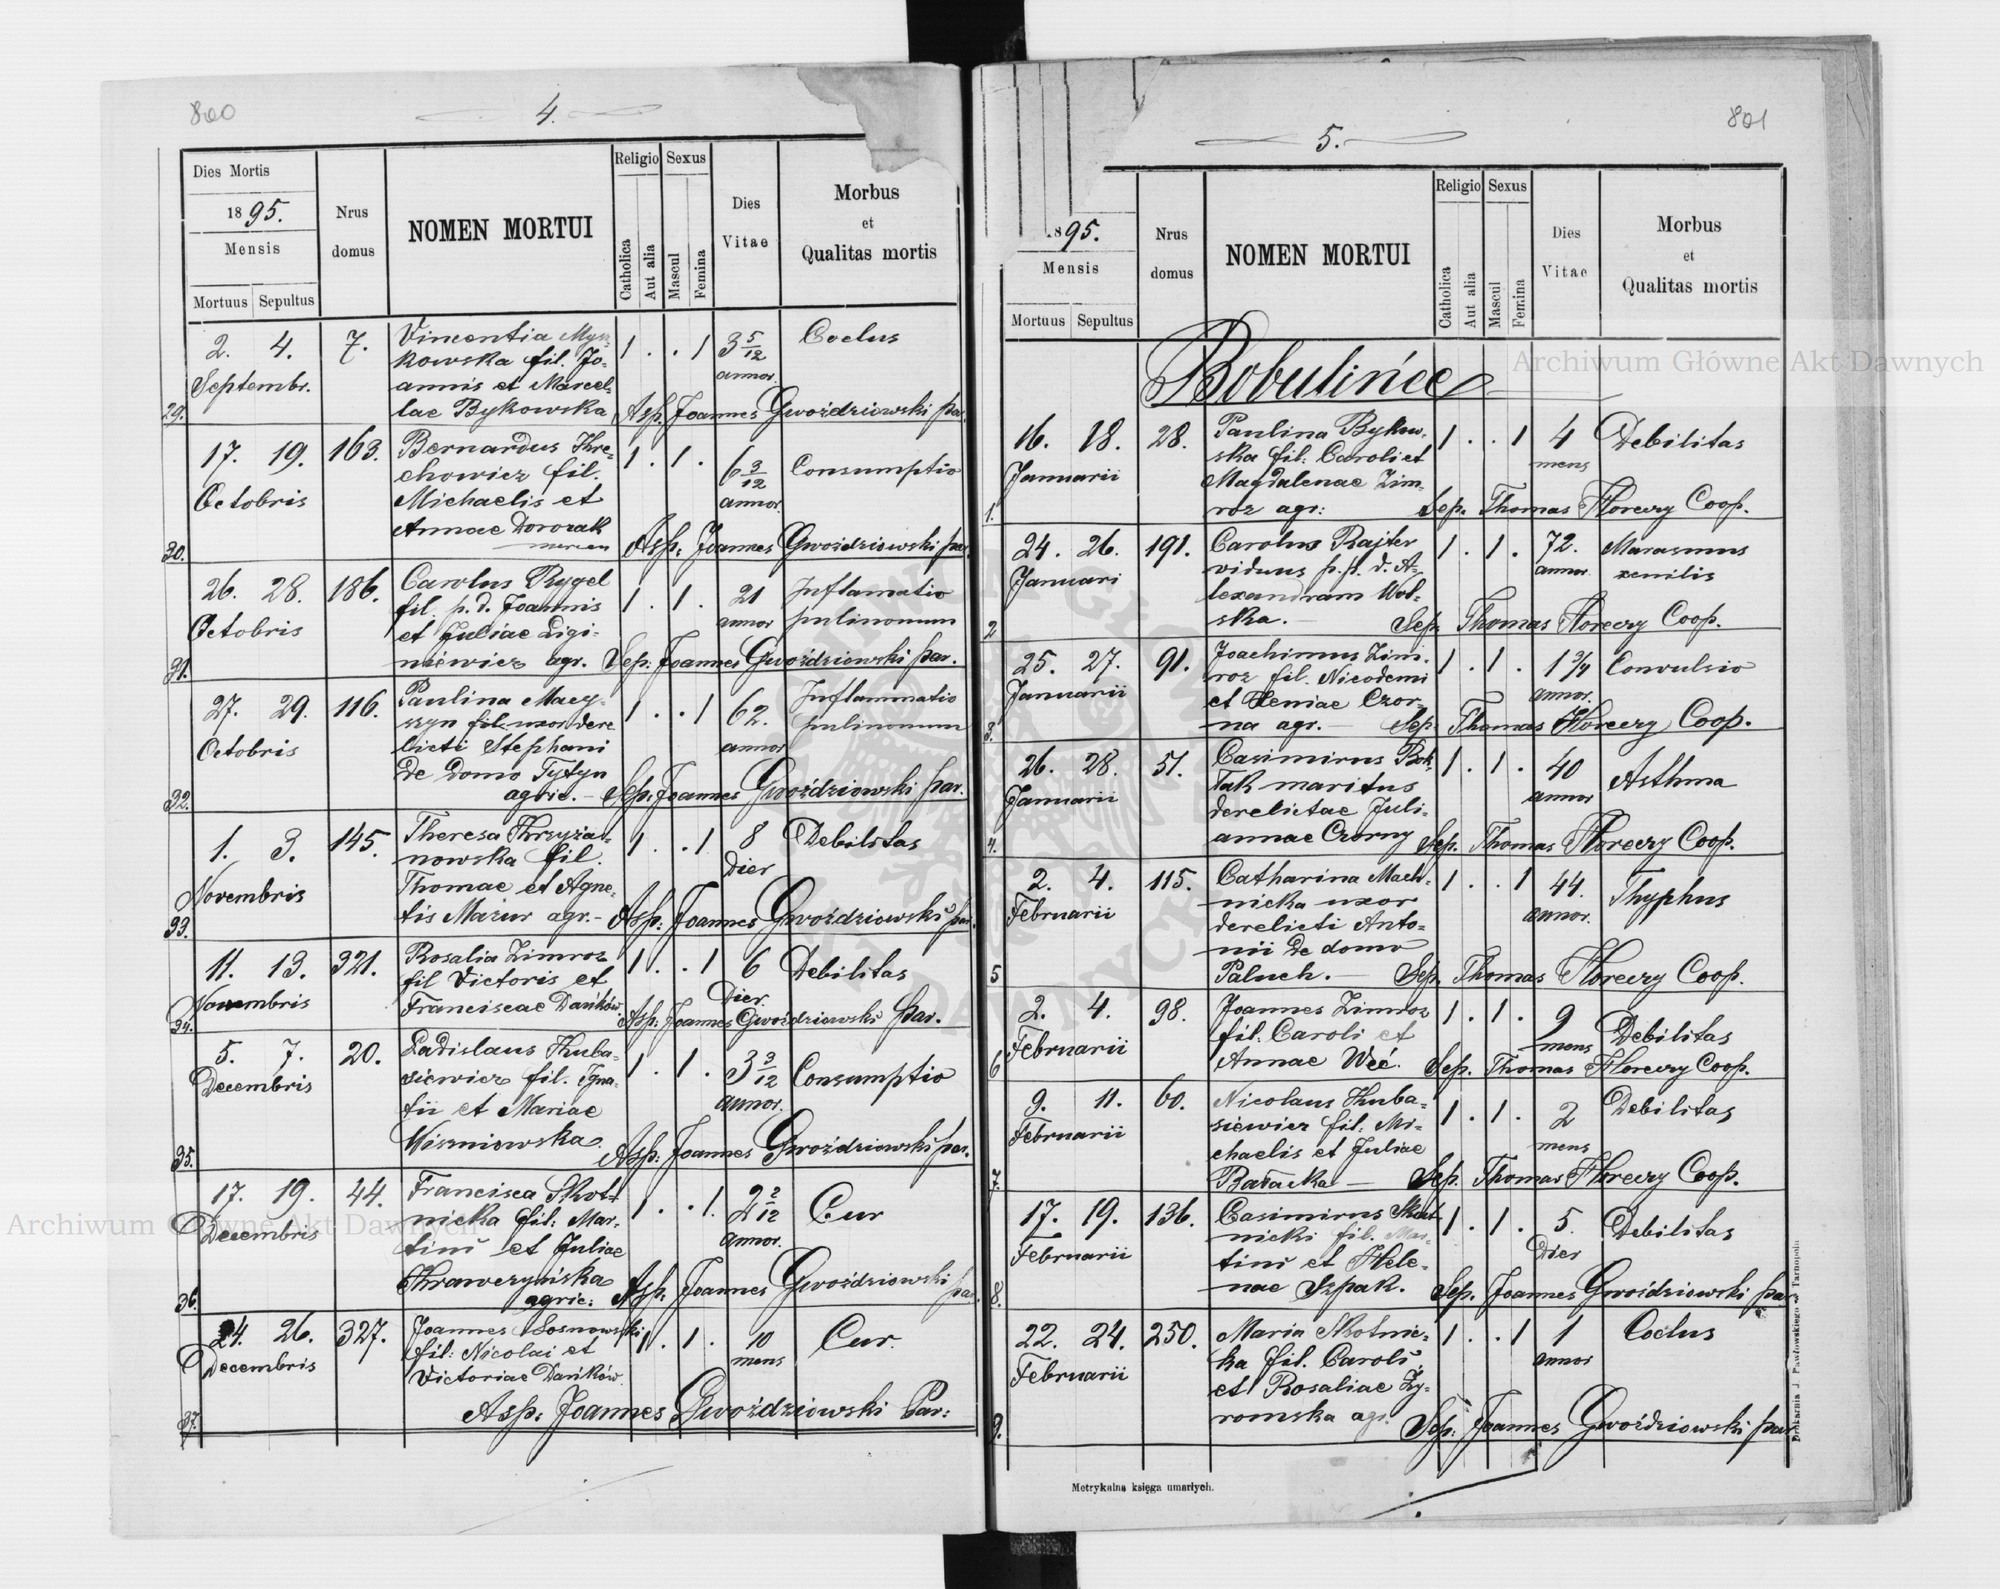 800
4.
Dies Mortis
1895.
Mensis
Mortuus Sepultus
Nrus
domus
NOMEN MORTUI
Religio
Catholica
Aut alia
Sexus
Mascul
Femina
Dies
Vitae
Morbus
et
Qualitas mortis
29.
2. 4.
Septembr.
7.
Vincentia Mysz-
kowska fil. Jo-
annis et Marcel-
lae Bykowska
1 . . 1
3 5/12
annor.
Coclus
Asp. Joannes Gwoździowski par.
30.
17. 19.
Octobris
163.
Bernardus Kre-
chowicz fil.
Michaelis et
Annae Dworzak
1 . 1 .
6 3/12
annor.
Consumptio
Asp: Joannes Gwoździowski par.
31.
26. 28.
Octobris
186.
Carolus Rygel
fil. p.d. Joannis
et Juliae Ligi-
niewicz agr.
1 . 1 .
21
annor
Inflamatio
pulmonum
Sep: Joannes Gwoździowski par.
32.
27. 29.
Octobris
116.
Paulina Macy-
szyn uxor dere
licti Stephani
de domo Tytyn
agric. -
1 . . 1
62.
annor
Inflammatio
pulmonum
Sep: Joannes Gwoździowski par.
33.
1. 3.
Novembris
145.
Theresa Krzyża-
nowska fil.
Thomae et Agne-
tis Mazur agr. -
1 . . 1
8
Dier
Debilitas
Asp: Joannes Gwoździowski par.
34.
11. 13.
Novembris
321.
Rosalia Zimroz
fil Victoris et
Franciscae Dańków
1 . . 1
6
Dier.
Debilitas
Asp: Joannes Gwoździowski Par.
35.
5. 7.
Decembris
20.
Ladislaus Kuba-
siewicz fil. Igna-
tii et Mariae
Wiszniowska
1 . 1 .
3 3/12
annor.
Consumptio
Asp: Joannes Gwoździowski par.
36.
17. 19.
Decembris
44.
Francisca Skot-
nicka fil: Mar-
tini et Juliae
Krawczyńska
agric:
1 . . 1.
2 2/12
annor.
Cur
Asp. Joannes Gwoździowski par.
37.
24. 26.
Decembris
327.
Joannes Sosnowski
fil: Nicolai et
Victoriae Dańków.
1 . 1 .
10
mens
Cur.
Asp: Joannes Gwoździowski Par:
801
5.
1895.
Mensis
Mortuus Sepultus
Nrus
domus
NOMEN MORTUI
Religio
Catholica
Aut alia
Sexus
Mascul
Femina
Dies
Vitae
Morbus
et
Qualitas mortis
Bobulińce
1.
16. 18.
Januarii
28.
Paulina Bykow-
ska fil: Caroli et
Magdalenae Zim-
roz agr:
1 . . 1
4
mens
Debilitas
Sep. Thomas Florczy Coop.
2
24. 26.
Januari
191.
Carolus Rajter
viduus p.p. d. A-
lexandram Wol-
ska. -
1 . 1 .
72.
annor
Marasmus
senilis
Sep. Thomas Florczy Coop.
3.
25. 27.
Januarii
91.
Joachimus Zim-
roz fil. Nicodemi
et Xeniae Czor-
na agr. -
1 . 1 .
1 3/4
annor.
Convulsio
Sep Thomas Florczy Coop.
4.
26. 28.
Januarii
51.
Casimirus Bok-
tak maritus
derelictae Juli-
annae Czorny
1 . 1 .
40
annor
Asthma
Sep. Thomas Florczy Coop.
5
2. 4.
Februarii
115.
Catharina Mach-
nicka uxor
derelicti Anto-
nii de domo
Paluch. -
1 . . 1
44.
annor.
Thyphus
Sep. Thomas Florczy Coop.
6
2. 4.
Februarii
98.
Joannes Zimroz
fil: Caroli et
Annae Weć.
1 . 1 .
9
mens
Debilitas
Sep. Thomas Florczy Coop.
7.
9. 11.
Februarii
60.
Nicolaus Kuba-
siewicz fil: Mi-
chaelis et Juliae
Bałacka -
1 . 1 .
2
mens
Debilitas
Sep. Thomas Florczy Coop.
8.
17. 19.
Februarii
136.
Casimirus Skot-
nicki fil. Mar-
tini et Hele-
nae Szpak.
1 . 1 .
5.
Dier
Debilitas
Sep. Joannes Gwoździowski par
9.
22. 24.
Februarii
250.
Maria Skotnic-
ka fil. Caroli
et Rosaliae Zy-
romska agr.
1 . . 1
1
annor
Coclus
Sep: Joannes Gwoździowski par
Metrykalna księga umarłych.
Drukarnia J. Pawłowskiego w Tarnopolu
Archiwum Główne Akt Dawnych
Archiwum Główne Akt Dawnych